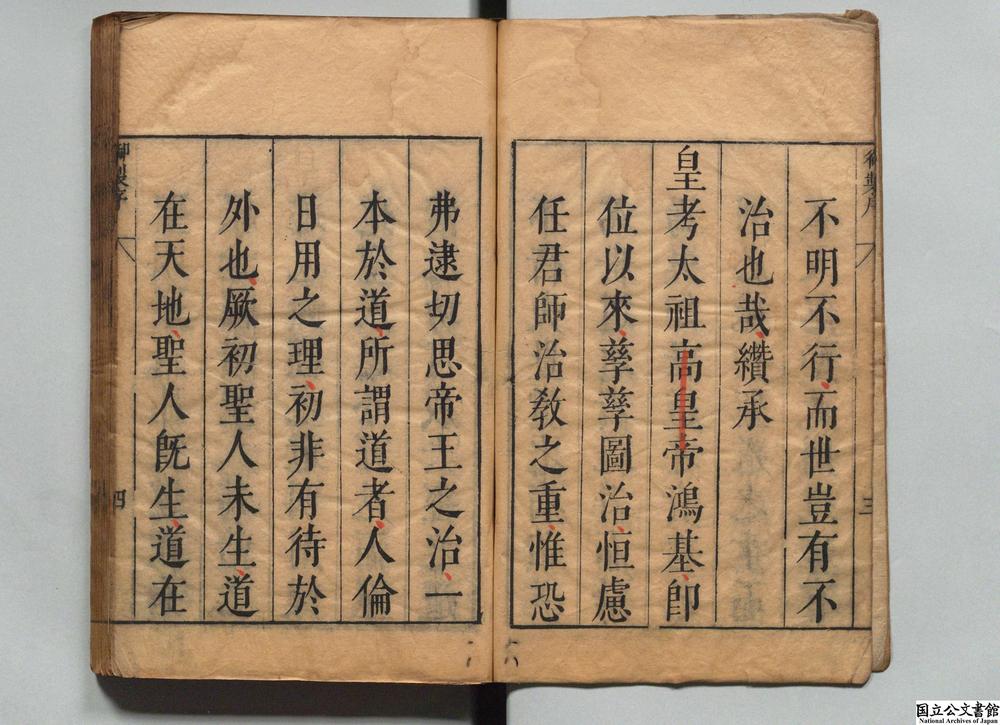 御製序
三
不明不行而世豈有不
治也哉纘承
皇考太祖高皇帝鴻基即
位以來孳孳圖治恒慮
任君師治教之重惟恐
弗逮切思帝王之治一
本於道所謂道者人倫
日用之理初非有待於
外也厥初聖人未生道
在天地聖人旣生道在
御製序
四
国立公文書館
National Archives of Japan